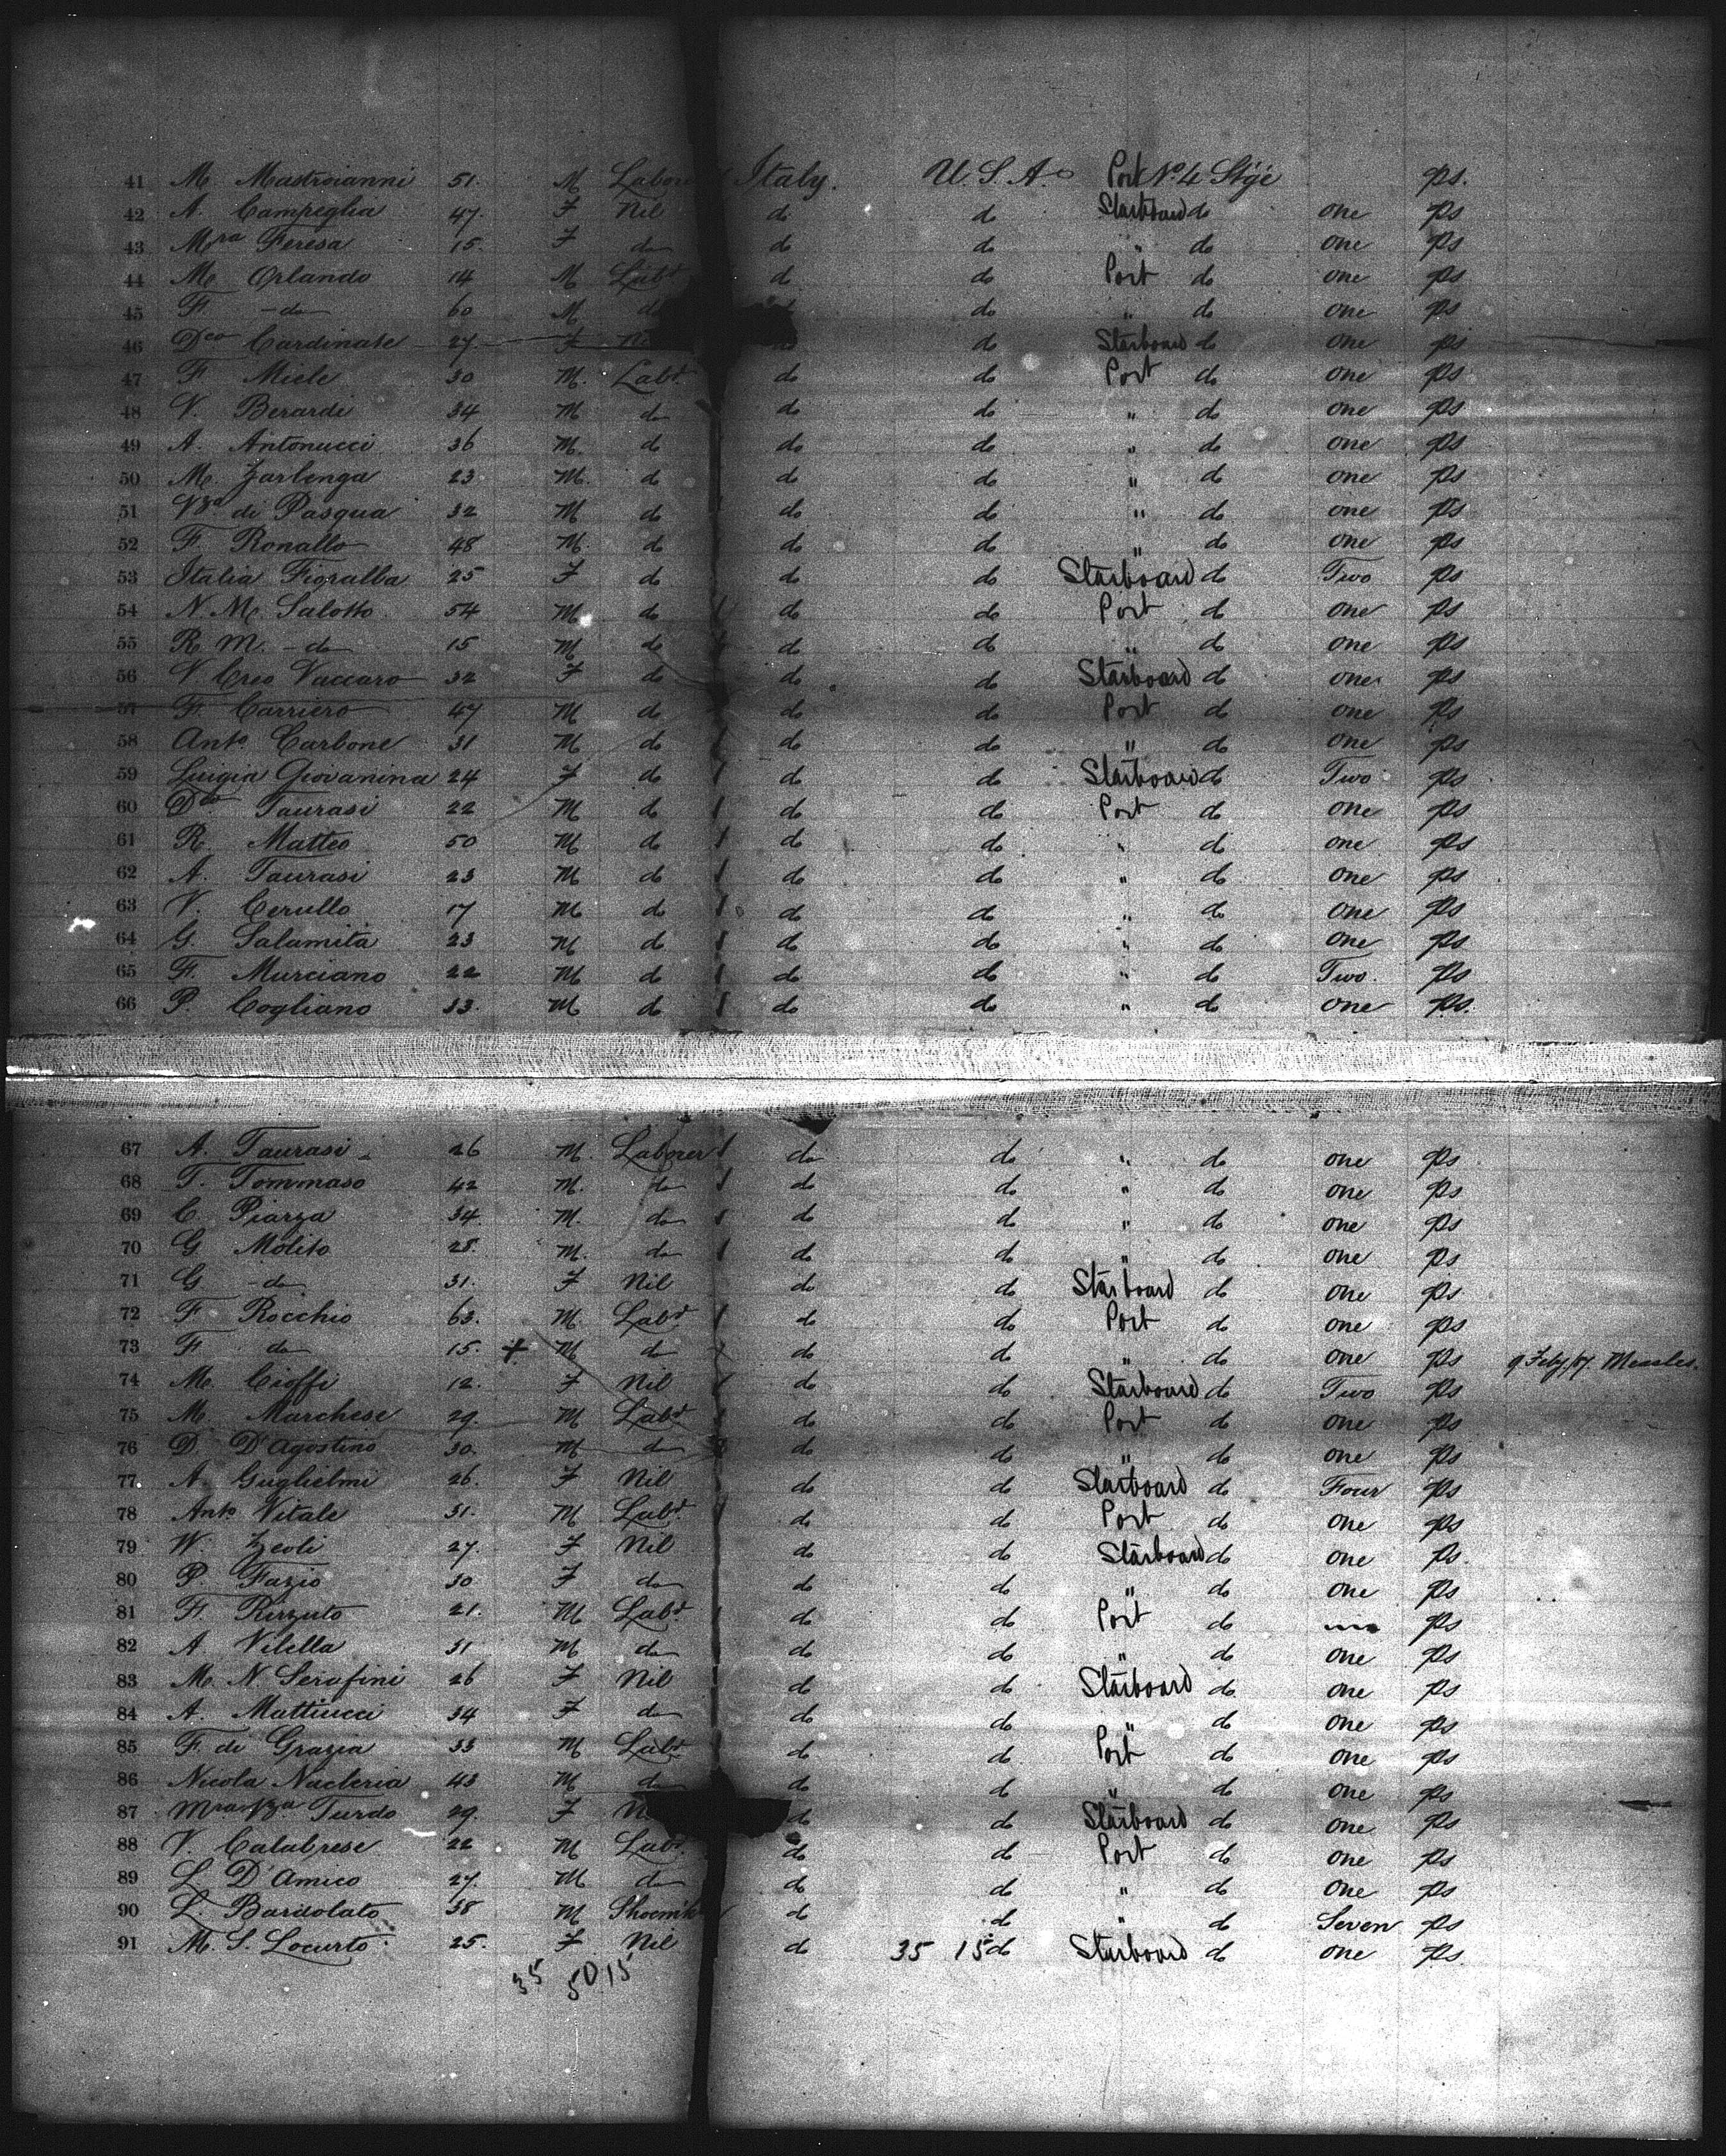 41 M. Mastroianni 51. M Labor Italy. U.S.A. Port No. 4 Stge ps.
42 A. Campeglia 47. F Nil do do Starboard do one ps
43 Mra Teresa 15. F do do do " do one ps
44 M. Orlando 14 M Labr do do Port do one ps
45 F. - do - 60 M do do " do one ps
46 Dco Cardinale 27. F do do Starboard do one ps
47 F Miele 30 M. Labr do do Port do one ps
48 V. Berardi 34 M do do do " do one ps
49 A. Antonucci 36 M. do do do " do one ps
50 M. Zarlenga 23 M. do do do " do one ps
51 Vza di Pasqua 32 M do do do " do one ps
52 F. Ronallo 48 M. do do do " do one ps
53 Italia Fioralba 25 F do do do Starboard do Two ps
54 N. M. Salotto 54 M do do do Port do one ps
55 R. M. - do 15 M do do do " do one ps
56 V. Creo Vaccaro 32 F do do do Starboard do one ps
57 F. Carriero 47 M do do do Port do one ps
58 Anto. Carbone 31 M do do do " do one ps
59 Luigia Giovanina 24 F do do do Starboard do Two ps
60 Dco Taurasi 22 M do do do Port do one ps
61 R. Matteo 50 M do do do " do one ps
62 A. Taurasi 23 M do do do " do one ps
63 V. Cerullo 17 M do do do " do one ps
64 G. Salamita 23 M do do do " do one ps
65 F. Murciano 22 M do do do " do Two ps
66 P. Cogliano 33. M do do do " do one ps.
67 A. Taurasi 26 M. Laborer do do " do one ps
68 T. Tommaso 42 M. do do do " do one ps
69 C. Piazza 34. M. do do do " do one ps
70 G Molito 28. M. do do do " do one ps
71 G - do 31. F Nil do do Starboard do one ps
72 F Rocchio 63. M. Labr do do Port do one ps
73 F. do 15. + M do do do " do one ps 9 Feby/07. Measles.
74 M. Cioffi 12. F Nil do do Starboard do Two ps
75 M. Marchese 29. M Labr do do Port do one ps
76 D. D'Agostino 30. M do do do " do one ps
77 A. Guglielmi 26. F Nil do do Starboard do Four ps
78 Anto Vitale 31. M Labr. do do Port do one ps
79 W. Zeoli 27. F Nil do do Starboard do one ps.
80 P. Fazio 30 F do do do " do one ps
81 F. Rizzuto 21. M Labr do do Port do ps
82 A Vilella 31 M do do do " do one ps
83 M. N. Serafini 26 F Nil do do Starboard do one ps
84 A. Mattiucci 34 F do do do " do one ps
85 F. di Grazia 33 M Labr do do Port do one ps
86 Nicola Nucleria 43 M do do do " do one ps
87 Mra Nza Turdo 29. F do do Starboard do one ps
88 V. Calabrese 22 M Labr. do do Port do one ps
89 L D'Amico 27. M do do do " do one ps
90 L. Barisolato 38 M Shoemk do do " do Seven ps
91 M. S. Locurto 25. F Nil do 35 15 do Starboard do one ps.
35 50 15